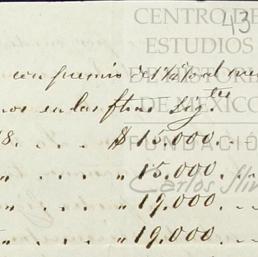 CENTRO DE
ESTUDIOS
DE HISTORIA
DE MÉXICO
FUNDACIÓN
Carlos Slim
43
con premio de 1 % al me
nos en las fhas sigtes
8. . . . $ 15,000. . .
" . . . " 15.000. . .
" . . . " 19.000. . .
" . . . " 19.000. . .